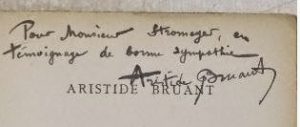 Pour Monsieur Stromeyer, en
témoignage de bonne sympathie
Aristide Bruant
ARISTIDE BRUANT